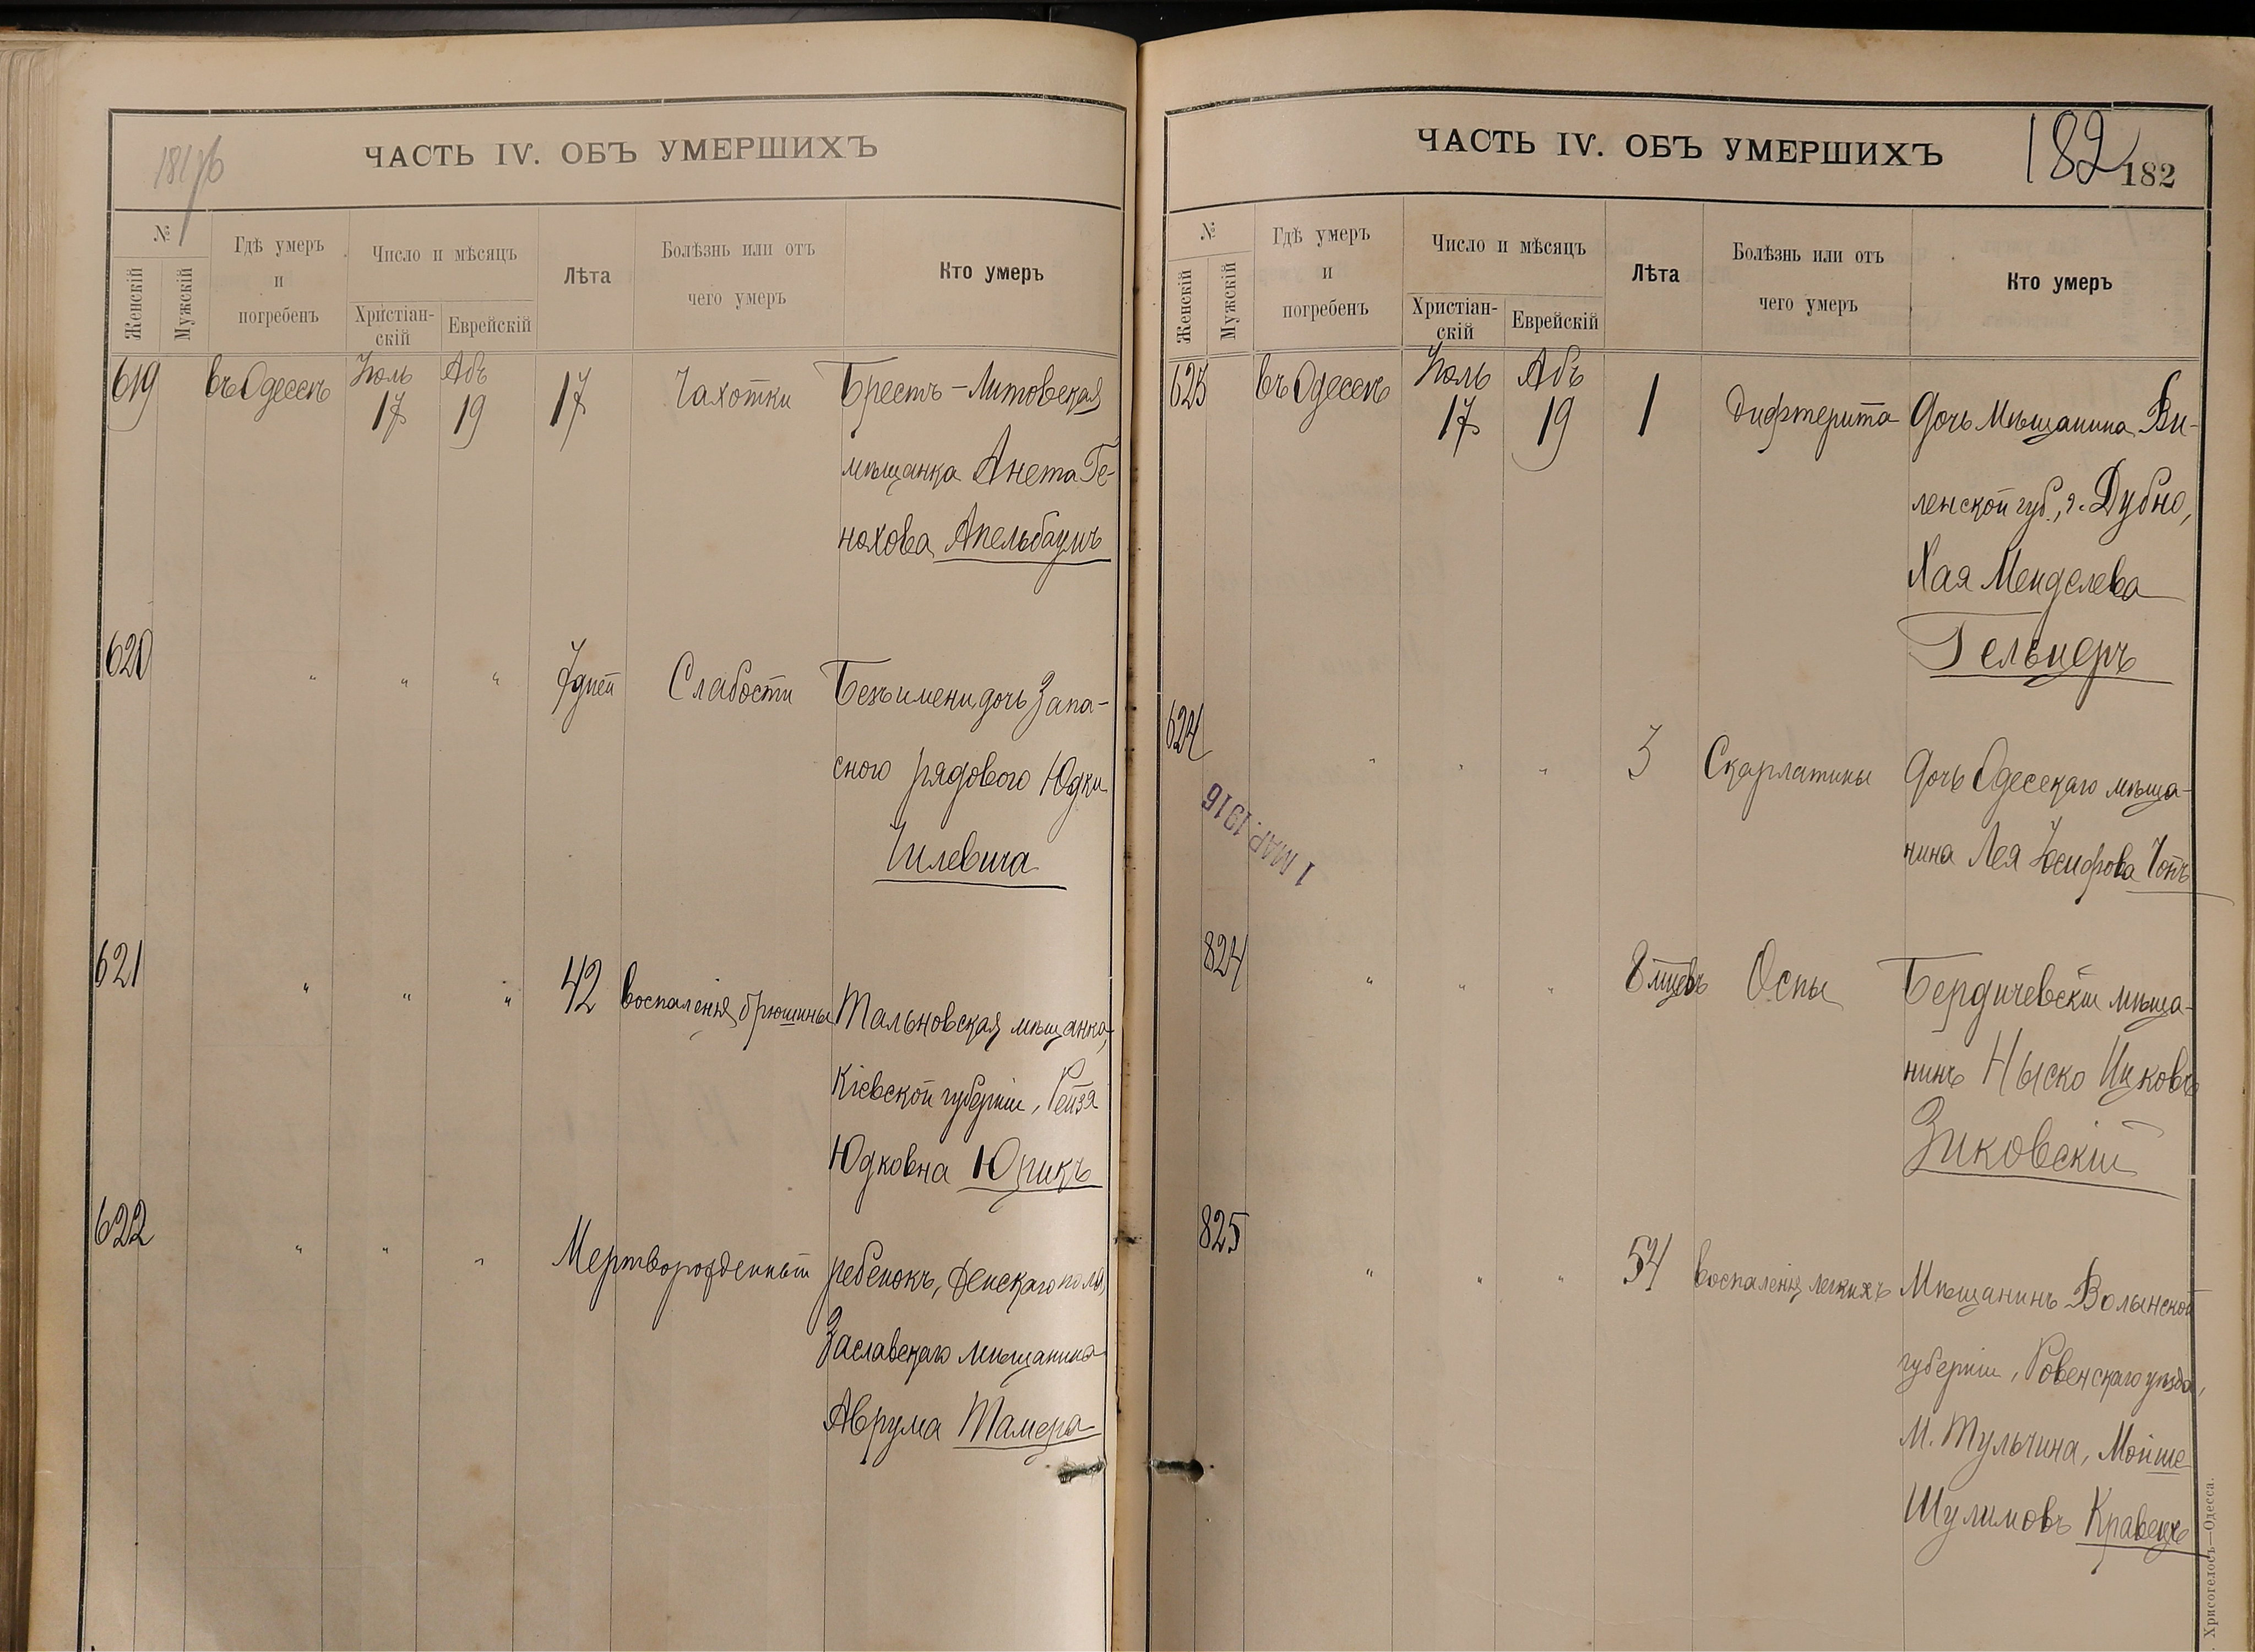 181 об
ЧАСТЬ IV. ОБЪ УМЕРШИХЪ
№
Женскій
Мужскій
Гдѣ умеръ
и
погребенъ
Число и мѣсяцъ
Христіан-
скій
Еврейскій
Лѣта
Болѣзнь или отъ
чего умеръ
Кто умеръ
619 въ Одессѣ Іюль 17 Абъ 19 17 Чахотки Брестъ-Литовская
мѣщанка Анета Ге-
нохова Апельбаумъ
620 " " " 7 дней Слабости Безъ имени, дочь запа-
сного рядового Юдки
Чилевича
621 " " " 42 воспаленія брюшины Тальновская мѣщанка,
Кіевской губерніи, Рейзя
Юдковна Юрикъ
622 " " " Мертворожденный ребенокъ, женскаго пола,
Заславскаго мѣщанина
Аврума Тамера
ЧАСТЬ IV. ОБЪ УМЕРШИХЪ
182
182
№
Женскій
Мужскій
Гдѣ умеръ
и
погребенъ
Число и мѣсяцъ
Христіан-
скій
Еврейскій
Лѣта
Болѣзнь или отъ
чего умеръ
Кто умеръ
623 въ Одессѣ Іюль 17 Абъ 19 1 Дифтерита Дочь мѣщанина Ви-
ленской губ., г. Дубно,
Хая Менделева
Гельцеръ
624 " " " 3 Скарлатины Дочь Одесскаго мѣща-
нина Лея Іосифова Чопъ
1 МАР. 1916
824 " " " 8 мцевъ Оспы Бердичевскій мѣща-
нинъ Ныско Ицковъ
Зиковскій
825 " " " 54 воспаленія легкихъ Мѣщанинъ Волынской
губерніи, Ровенскаго уѣзда,
М. Тульчина, Мойше
Шулимовъ Кравецъ
Хрисогелосъ—Одесса.